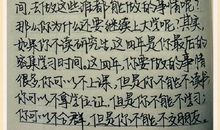 间,去做这些谁都不能做的事情呢?
那么你为什么还要继续上大学呢?其实,
如果你不读研究生,这四年是你最后的
密集学习时间,这四年,你要做的事情
很多,你可以不上课,但是你不能不读书
你可以不算学位证,但是你不能不学习
你可以不合群,但是你不能不交朋友